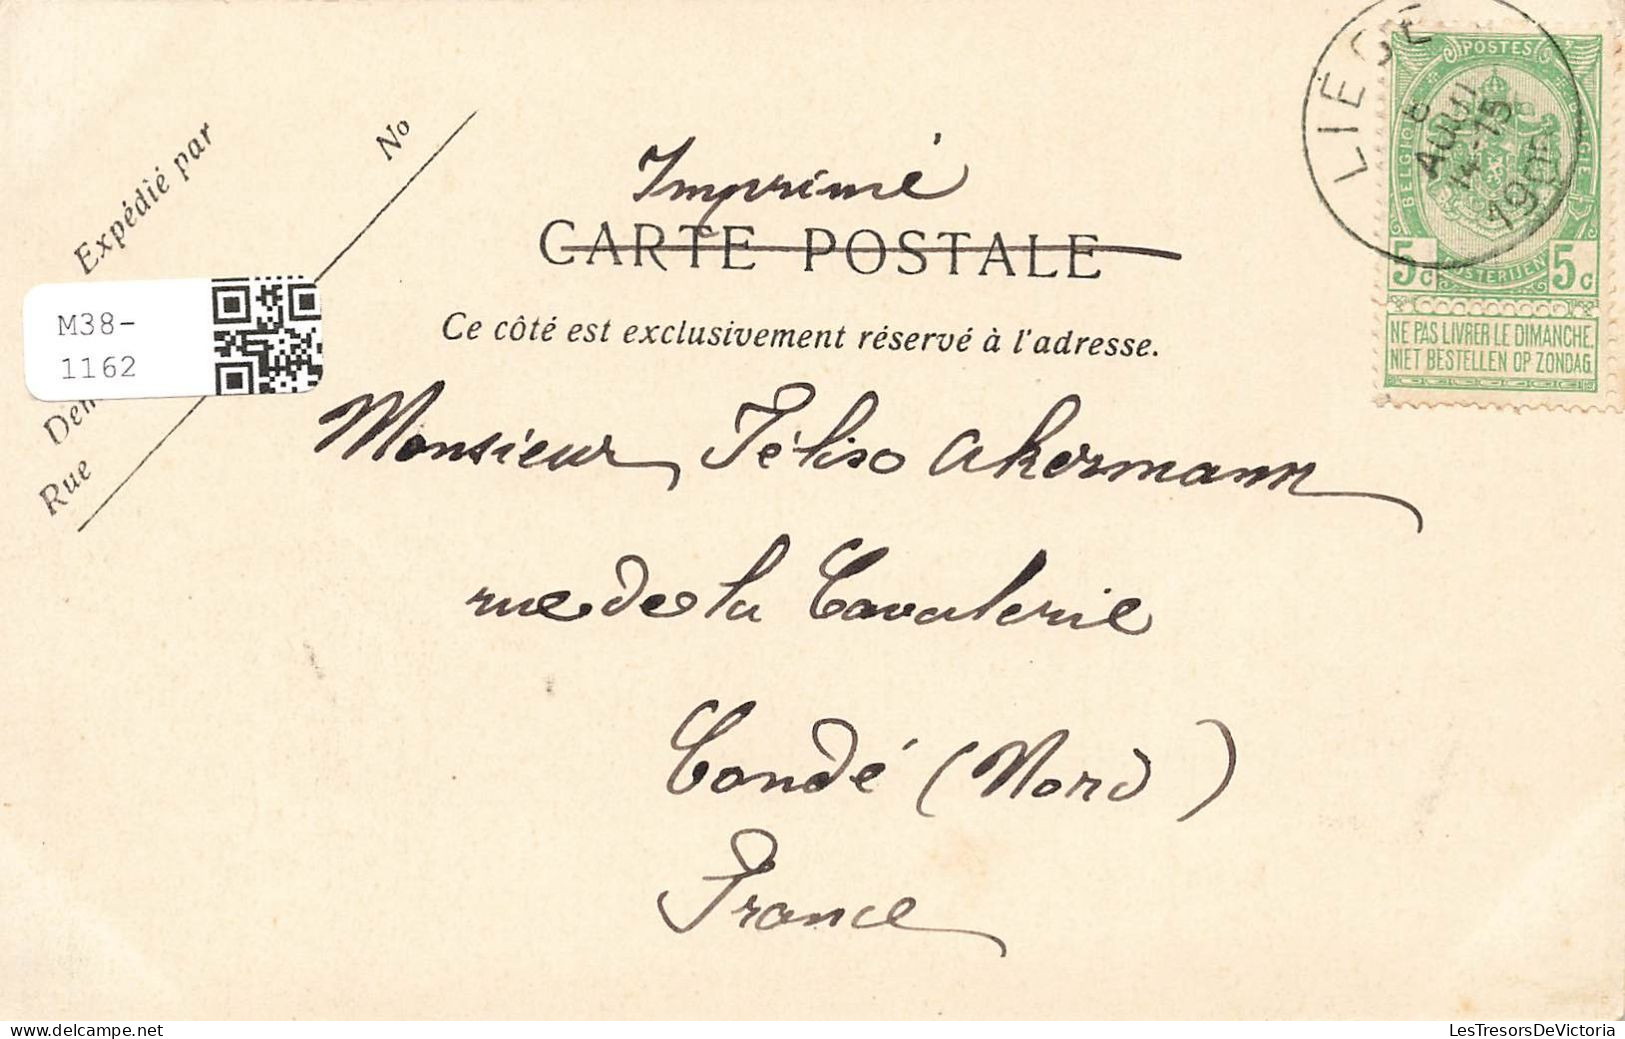 Expédié par
No
Rue
M38-
1162
Imprimé
CARTE POSTALE
Ce côté est exclusivement réservé à l'adresse.
Monsieur Féliso Akermann
rue de la Cavalerie
Condé (Nord)
France
LIÉGE
14-15
POSTES
BELGIQUE BELGIË
POSTERIJEN
5c 5c
NE PAS LIVRER LE DIMANCHE.
NIET BESTELLEN OP ZONDAG
delcampe.net
LesTresorsDeVictoria